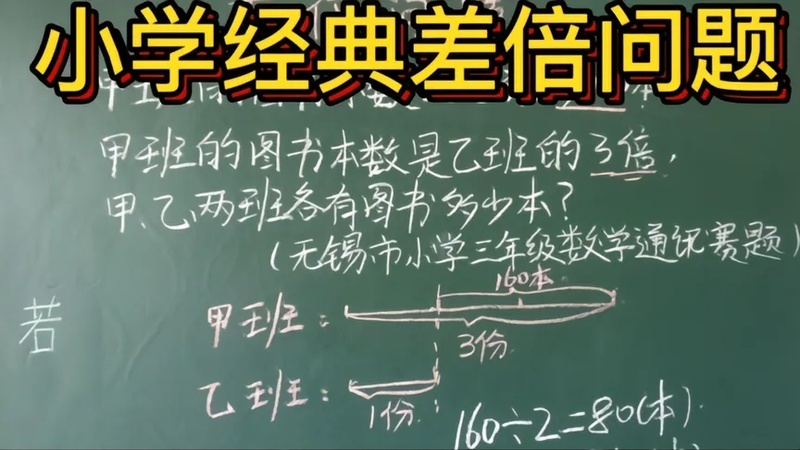 小学经典差倍问题
甲班的图书本数是乙班的3倍,
甲、乙两班各有图书多少本?
(无锡市小学三年级数学通讯赛题)
160本
若
甲班:
3份
乙班:
1份
160÷2=80(本)